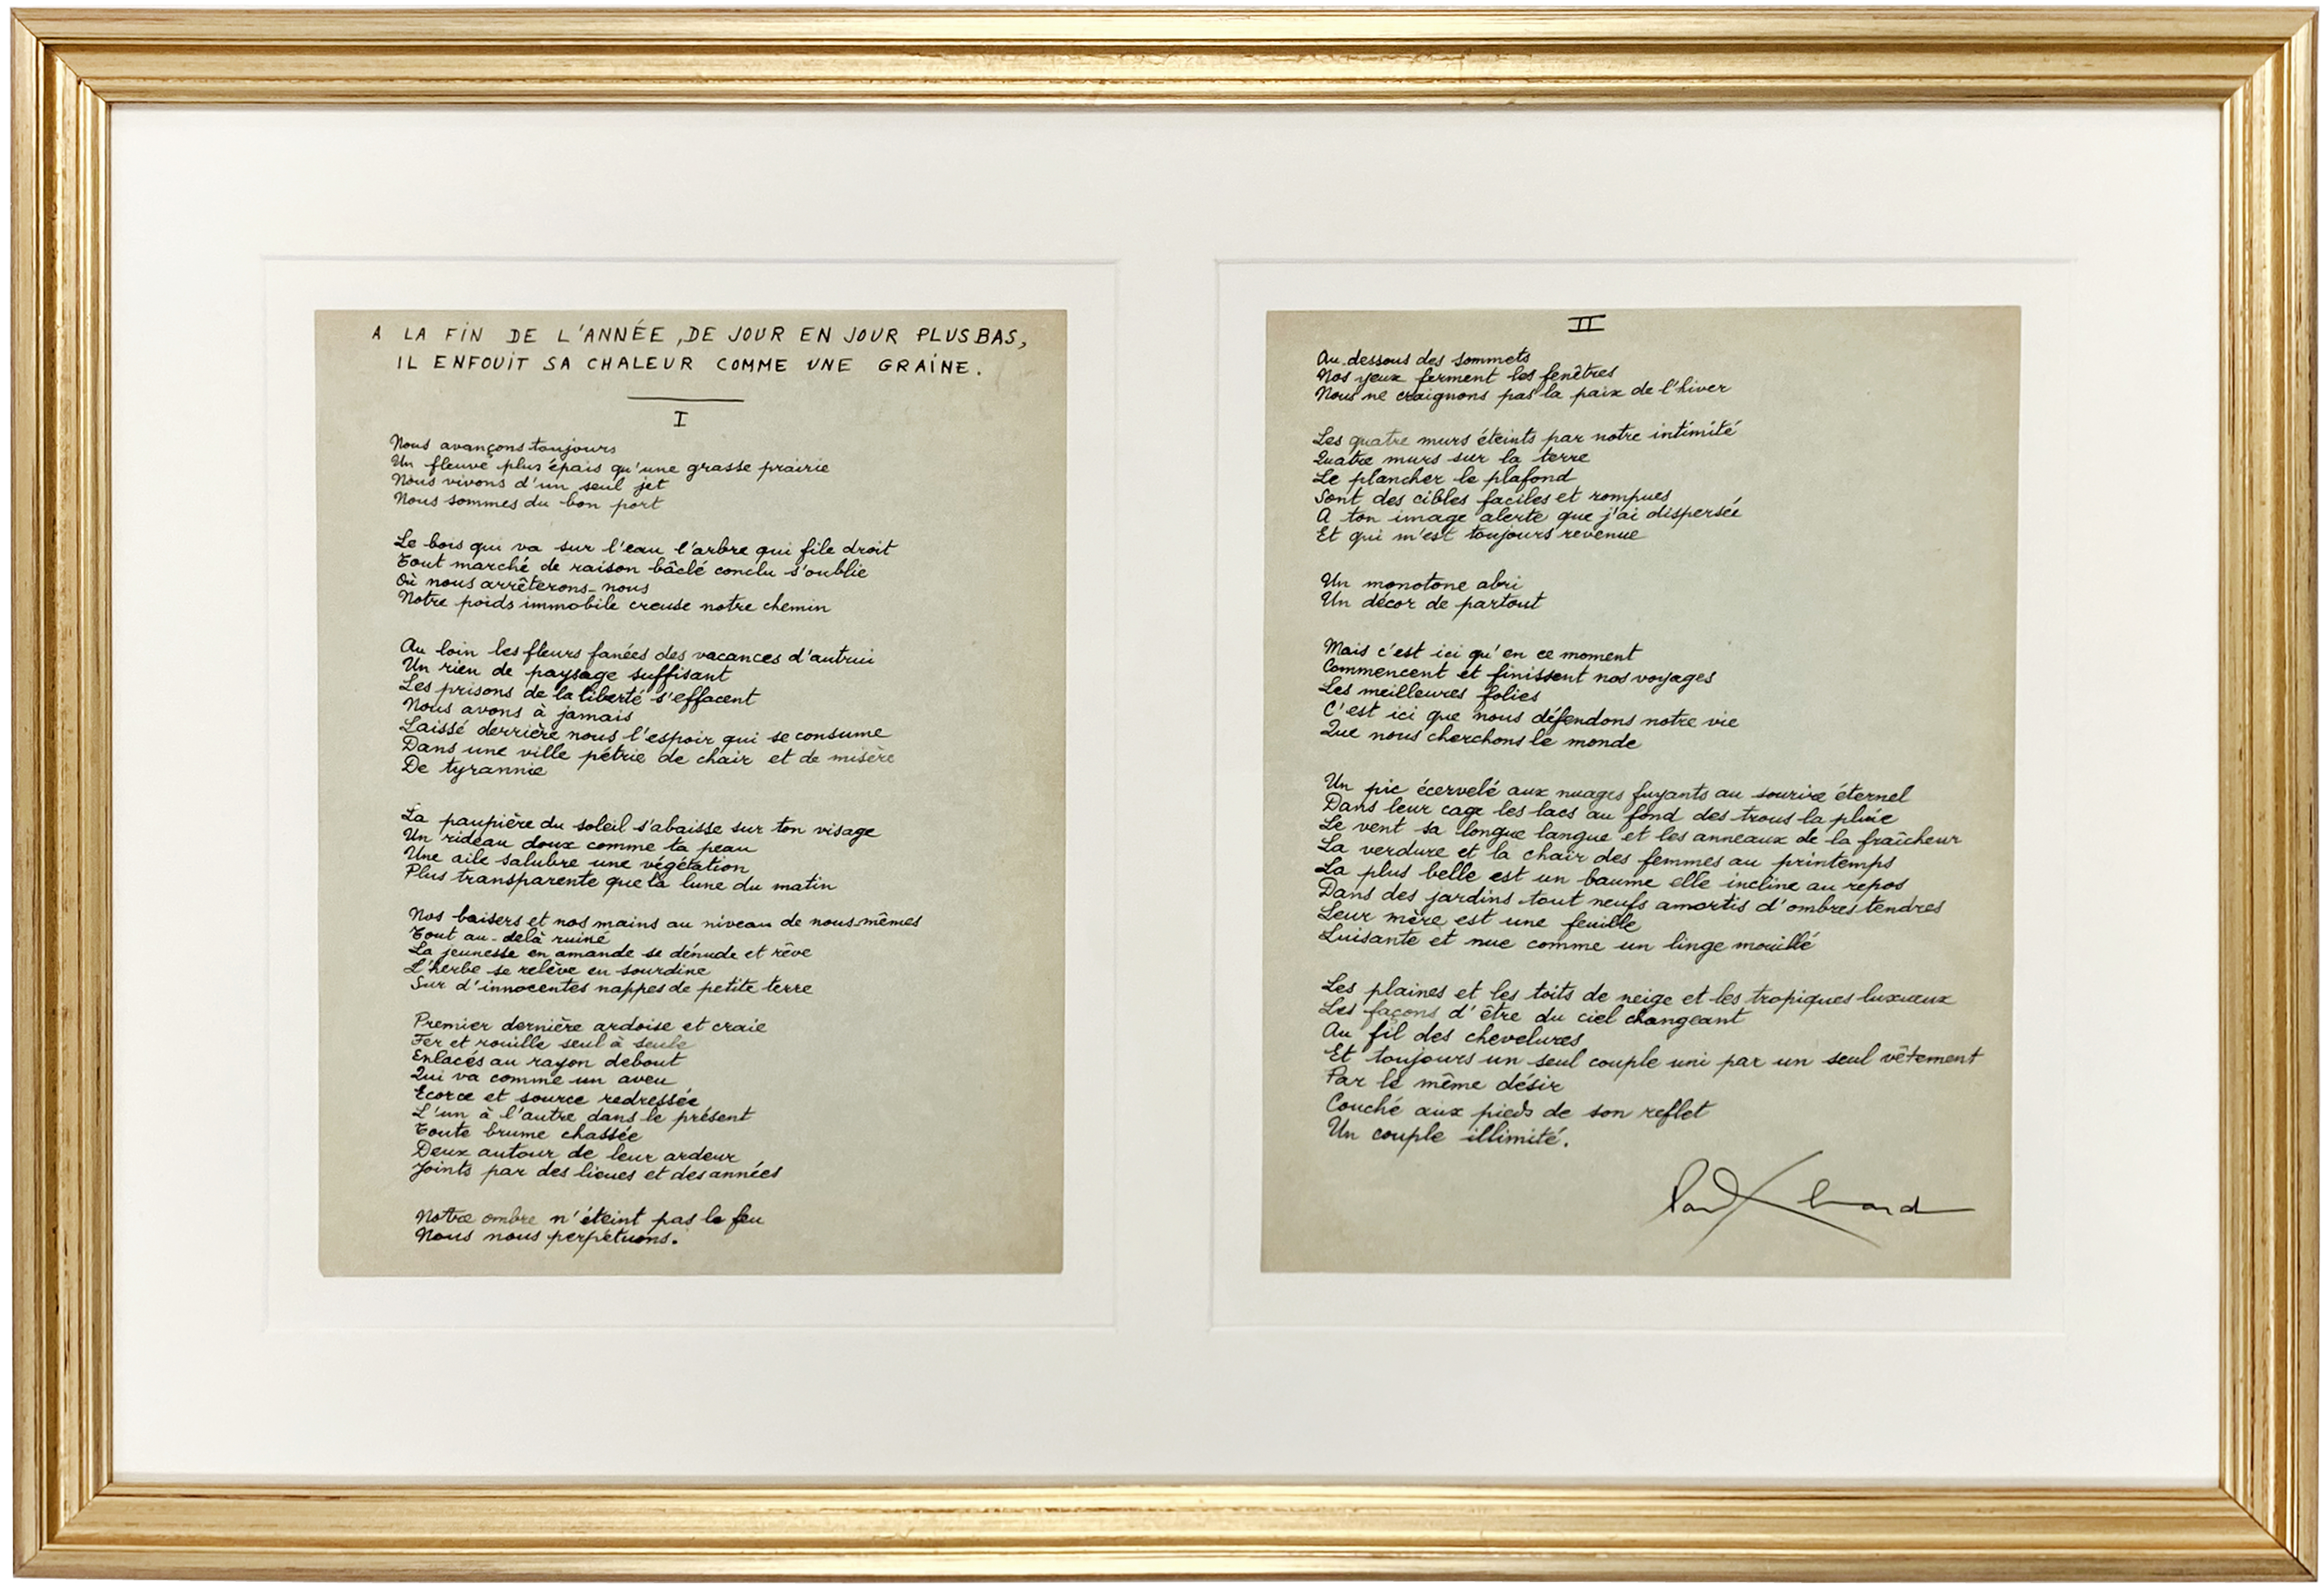 A LA FIN DE L'ANNÉE, DE JOUR EN JOUR PLUS BAS,
IL ENFOUIT SA CHALEUR COMME UNE GRAINE.
I
Nous avançons toujours
Un fleuve plus épais qu'une grasse prairie
Nous vivons d'un seul jet
Nous sommes du bon port
Le bois qui va sur l'eau l'arbre qui file droit
Tout marché de raison bâclé conclu s'oublie
Où nous arrêterons-nous
Notre poids immobile creuse notre chemin
Au loin les fleurs fanées des vacances d'autrui
Un rien de paysage suffisant
Les prisons de la liberté s'effacent
Nous avons à jamais
Laissé derrière nous l'espoir qui se consume
Dans une ville pétrie de chair et de misère
De tyrannie
La paupière du soleil s'abaisse sur ton visage
Un rideau doux comme ta peau
Une aile salubre une végétation
Plus transparente que la lune du matin
Nos baisers et nos mains au niveau de nous-mêmes
Tout au-delà ruiné
La jeunesse en amande se dénude et rêve
L'herbe se relève en sourdine
Sur d'innocentes nappes de petite terre
Premier dernière ardoise et craie
Fer et rouille seul à seule
Enlacés au rayon debout
Qui va comme un aveu
Ecorce et source redressée
L'un à l'autre dans le présent
Toute brume chassée
Deux autour de leur ardeur
Joints par des lieues et des années
Notre ombre n'éteint pas le feu
Nous nous perpétuons.
II
Au-dessous des sommets
Nos yeux ferment les fenêtres
Nous ne craignons pas la paix de l'hiver
Les quatre murs éteints par notre intimité
Quatre murs sur la terre
Le plancher le plafond
Sont des cibles faciles et rompues
A ton image alerte que j'ai dispersée
Et qui m'est toujours revenue
Un monotone abri
Un décor de partout
Mais c'est ici qu'en ce moment
Commencent et finissent nos voyages
Les meilleures folies
C'est ici que nous défendons notre vie
Que nous cherchons le monde
Un pic écervelé aux nuages fuyants au sourire éternel
Dans leur cage les lacs au fond des trous la pluie
Le vent sa longue langue et les anneaux de la fraîcheur
La verdure et la chair des femmes au printemps
La plus belle est un baume elle incline au repos
Dans des jardins tout neufs amortis d'ombres tendres
Leur mère est une feuille
Luisante et nue comme un linge mouillé
Les plaines et les toits de neige et les tropiques luxueux
Les façons d'être du ciel changeant
Au fil des chevelures
Et toujours un seul couple uni par un seul vêtement
Par le même désir
Couché aux pieds de son reflet
Un couple illimité.
Paul Eluard